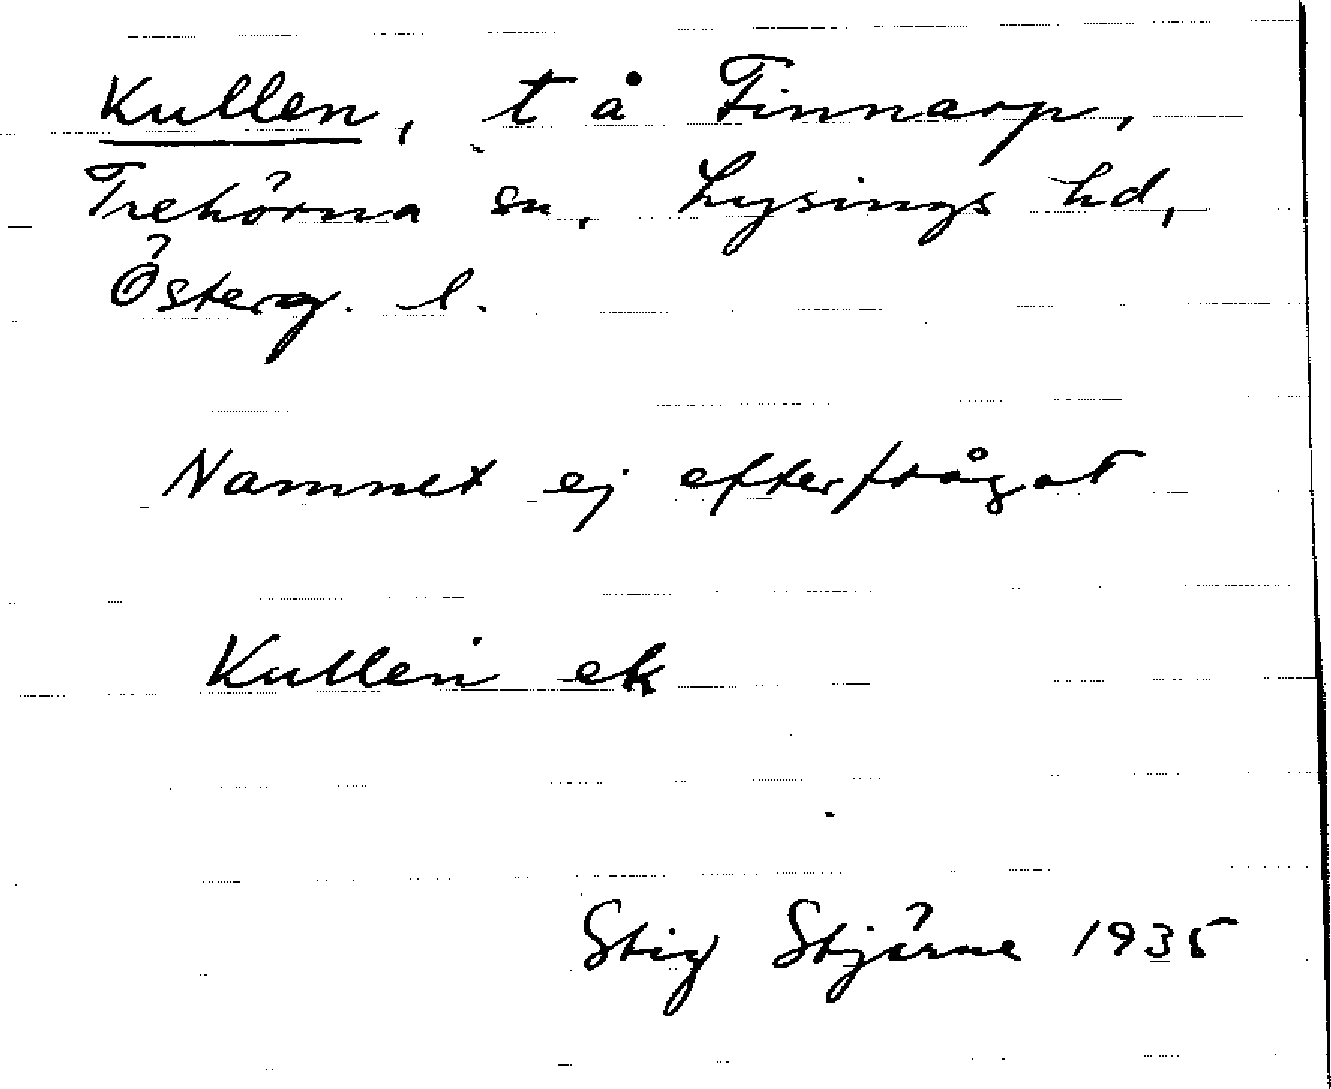 Kullen, t å Finnarp,
Trehörna sn. Lysings hd,
Österg. l.
Namnet ej efterfrågat
Kullen ek
Stig Stjärne 1935